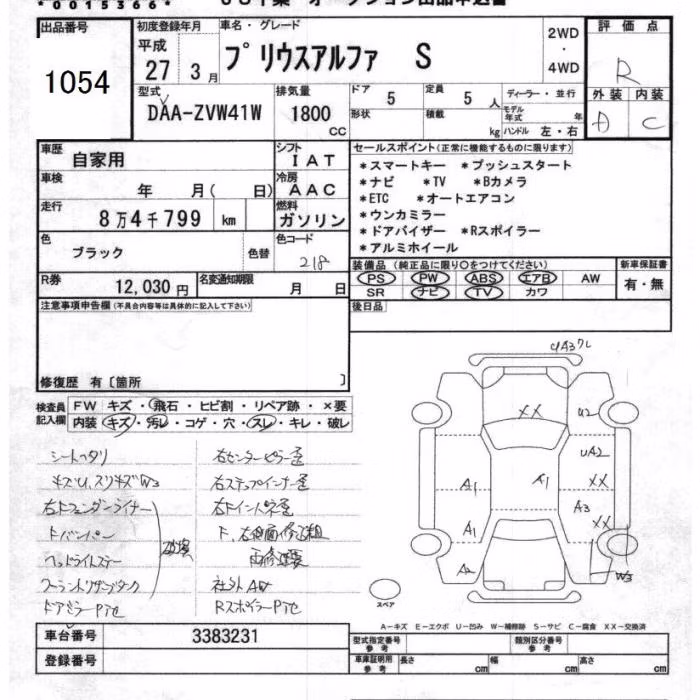 *0015366*
出品番号
1054
初度登録年月
平成
27 3月
車名・グレード
プリウスアルファ S
2WD
・
4WD
評価点
R
外装 内装
A C
型式
DAA-ZVW41W
排気量
1800
CC
ドア
5
定員
5 人
形状
積載
kg
ディーラー・並行
モデル年式 年
ハンドル 左・右
車歴
自家用
シフト
IAT
車検
年 月( 日)
冷房
AAC
走行
8万4千799 km
燃料
ガソリン
色
ブラック
色替
色コード
218
R券
12,030円
名変通知期限
月 日
セールスポイント(正常に機能するものに限ります)
*スマートキー *プッシュスタート
*ナビ *TV *Bカメラ
*ETC *オートエアコン
*ウンカミラー
*ドアバイザー *Rスポイラー
*アルミホイール
装備品(純正品に限り○をつけてください)
新車保証書
PS PW ABS エアB AW
SR ナビ TV カワ
有・無
後日品
注意事項申告欄(不具合内容等は具体的に記入して下さい)
修復歴 有〔箇所 〕
検査員
記入欄
FW キズ・飛石・ヒビ割・リペア跡・×要
内装 キズ・汚レ・コゲ・穴・スレ・キレ・破レ
シートヘタリ
キズU、スリキズW3
右Fフェンダーライナー
Fバンパー
ヘッドライトステー
ドアミラーPTC
右センターピラー歪
右ステップインナー歪
社外AW
XX
U2
UA2
XX
A1
A1
A3
XX
A1
A2
W3
スペア
A-キズ E-エクボ U-凹み W-補修跡 S-サビ C-腐食 XX-交換済
車台番号
3383231
登録番号
型式指定番号
参考
類別区分番号
参考
車庫証明用
参考
長さ cm
幅 cm
高さ cm